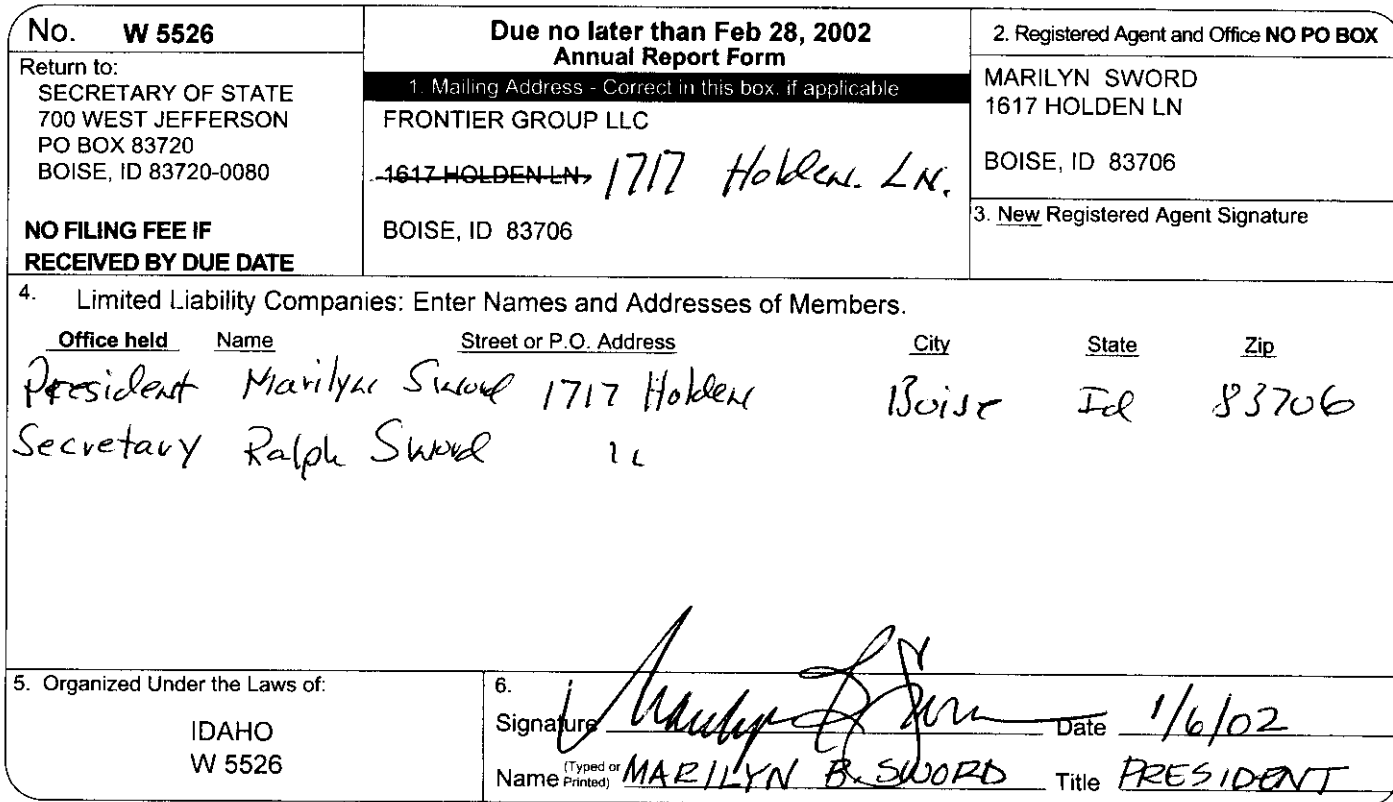 No. W 5526
Return to:
SECRETARY OF STATE
700 WEST JEFFERSON
PO BOX 83720
BOISE, ID 83720-0080
NO FILING FEE IF
RECEIVED BY DUE DATE
Due no later than Feb 28, 2002
Annual Report Form
1. Mailing Address - Correct in this box, if applicable
FRONTIER GROUP LLC
1617 HOLDEN LN, 1717 Holden. LN.
BOISE, ID 83706
2. Registered Agent and Office NO PO BOX
MARILYN SWORD
1617 HOLDEN LN
BOISE, ID 83706
3. New Registered Agent Signature
4. Limited Liability Companies: Enter Names and Addresses of Members.
Office held Name Street or P.O. Address City State Zip
President Marilyn Sword 1717 Holden Boise Id 83706
Secretary Ralph Sword "
5. Organized Under the Laws of:
IDAHO
W 5526
6.
Signature Marilyn B Sword Date 1/6/02
Name (Typed or Printed) MARILYN B. SWORD Title PRESIDENT